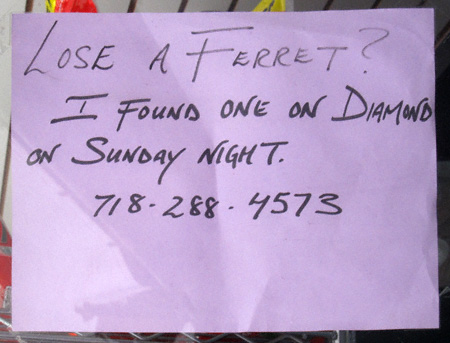 LOSE A FERRET?
I FOUND ONE ON DIAMOND
ON SUNDAY NIGHT.
718-288-4573